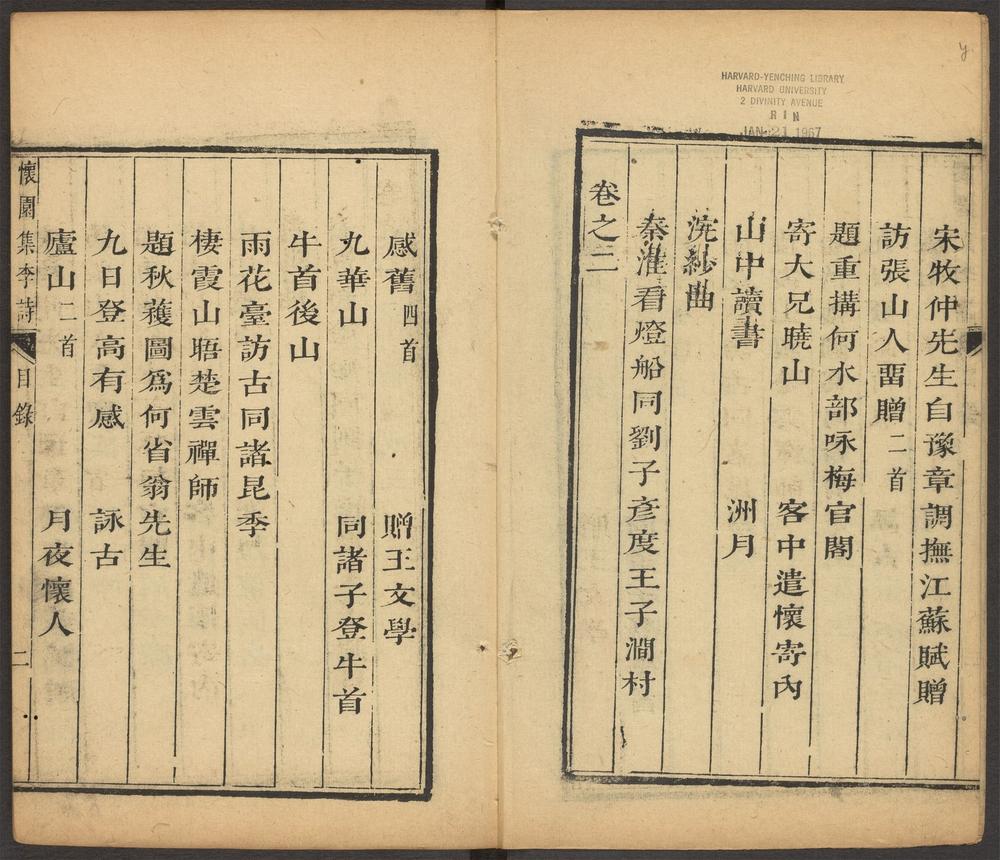 HARVARD-YENCHING LIBRARY
HARVARD UNIVERSITY
2 DIVINITY AVENUE
JAN 21 1967
宋牧仲先生自豫章調撫江蘇賦贈
訪張山人畱贈二首
題重搆何水部咏梅官閣
寄大兄曉山　客中遣懷寄內
山中讀書　洲月
浣紗曲
秦淮看燈船同劉子彥度王子澗村
卷之二
感舊四首　贈王文學
九華山　同諸子登牛首
牛首後山
雨花臺訪古同諸昆季
棲霞山晤楚雲禪師
題秋穫圖爲何省翁先生
九日登高有感　詠古
廬山二首　月夜懷人
懷園集李詩　目錄　二